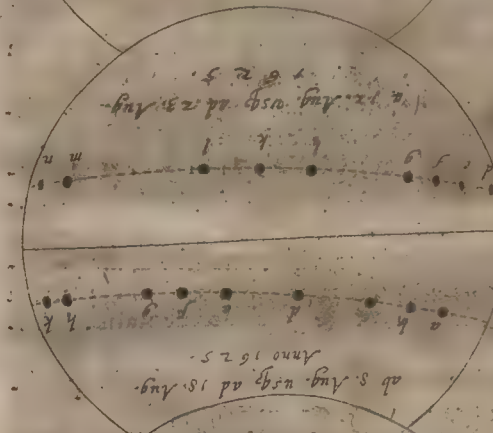 ab 5. Aug. usqꝫ ad 18. Aug.
Anno 1625.
a b c d e f g h k
d e f g h k l m n
a 12. Aug. usqꝫ ad 23. Aug.
1625.